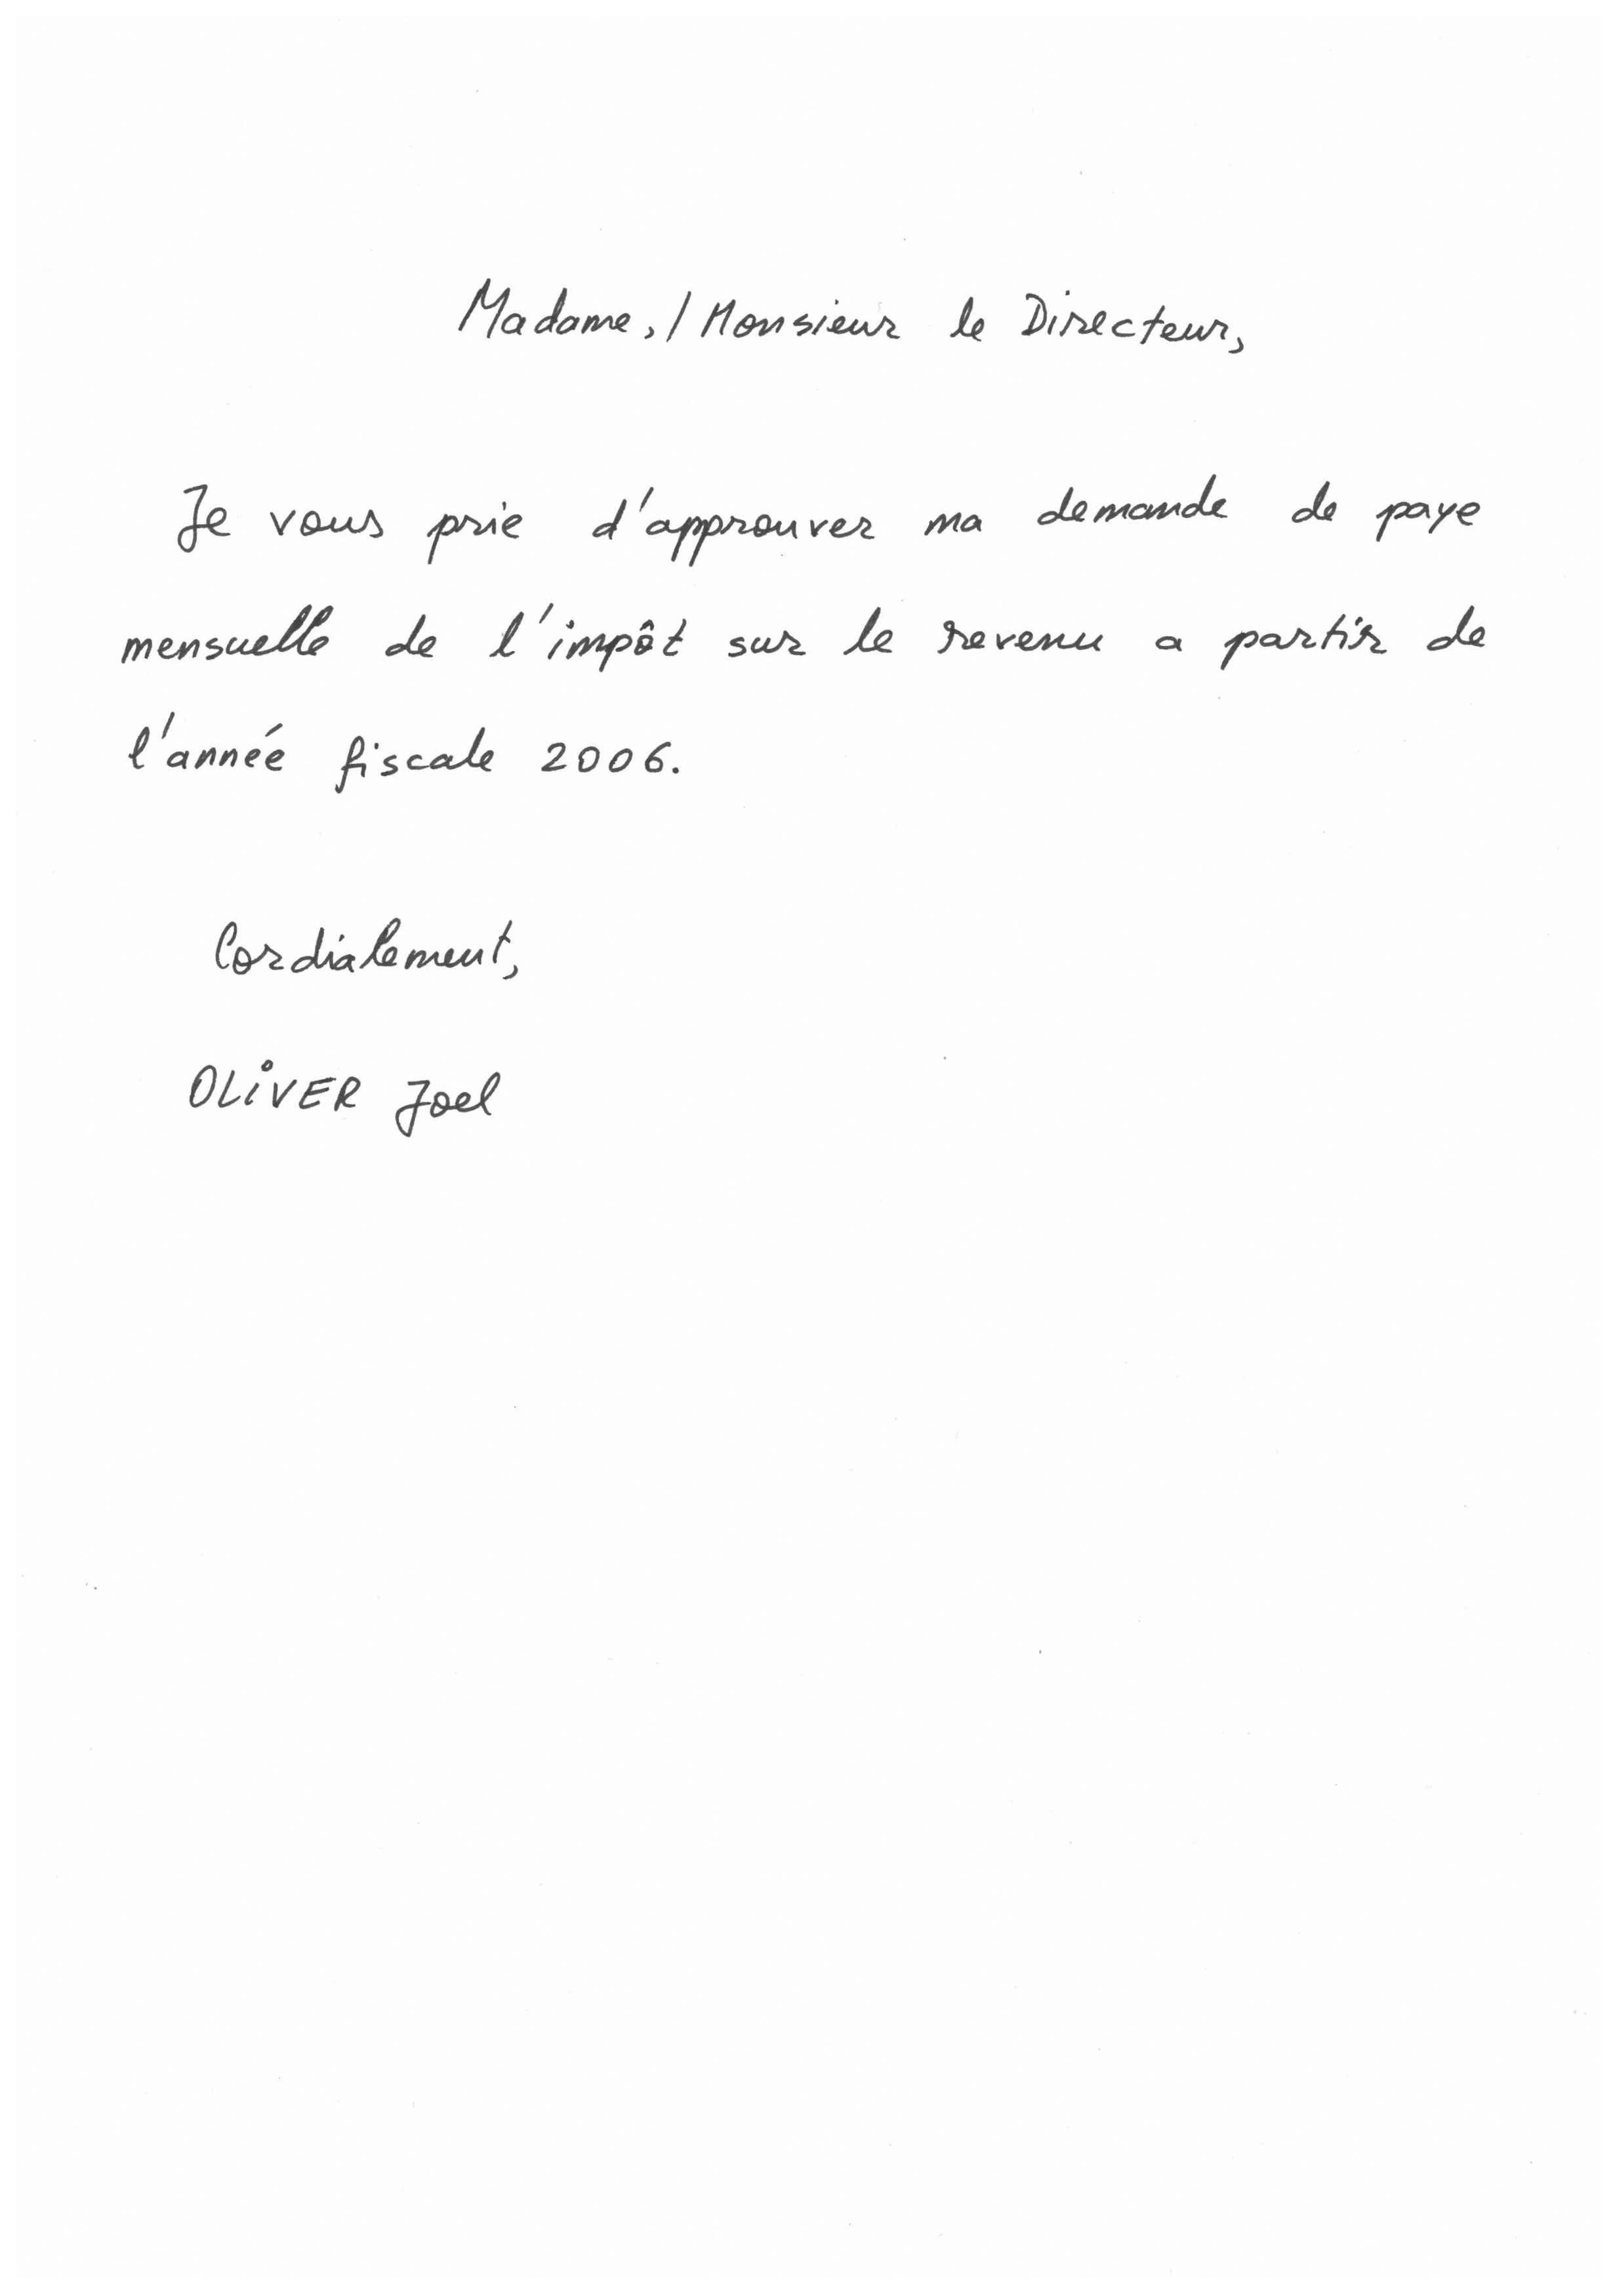 Madame, / Monsieur le Directeur,
Je vous prie d'approuver ma demande de paye
mensuelle de l'impôt sur le revenu a partir de
l'année fiscale 2006.
Cordialement,
OLiVER Joel